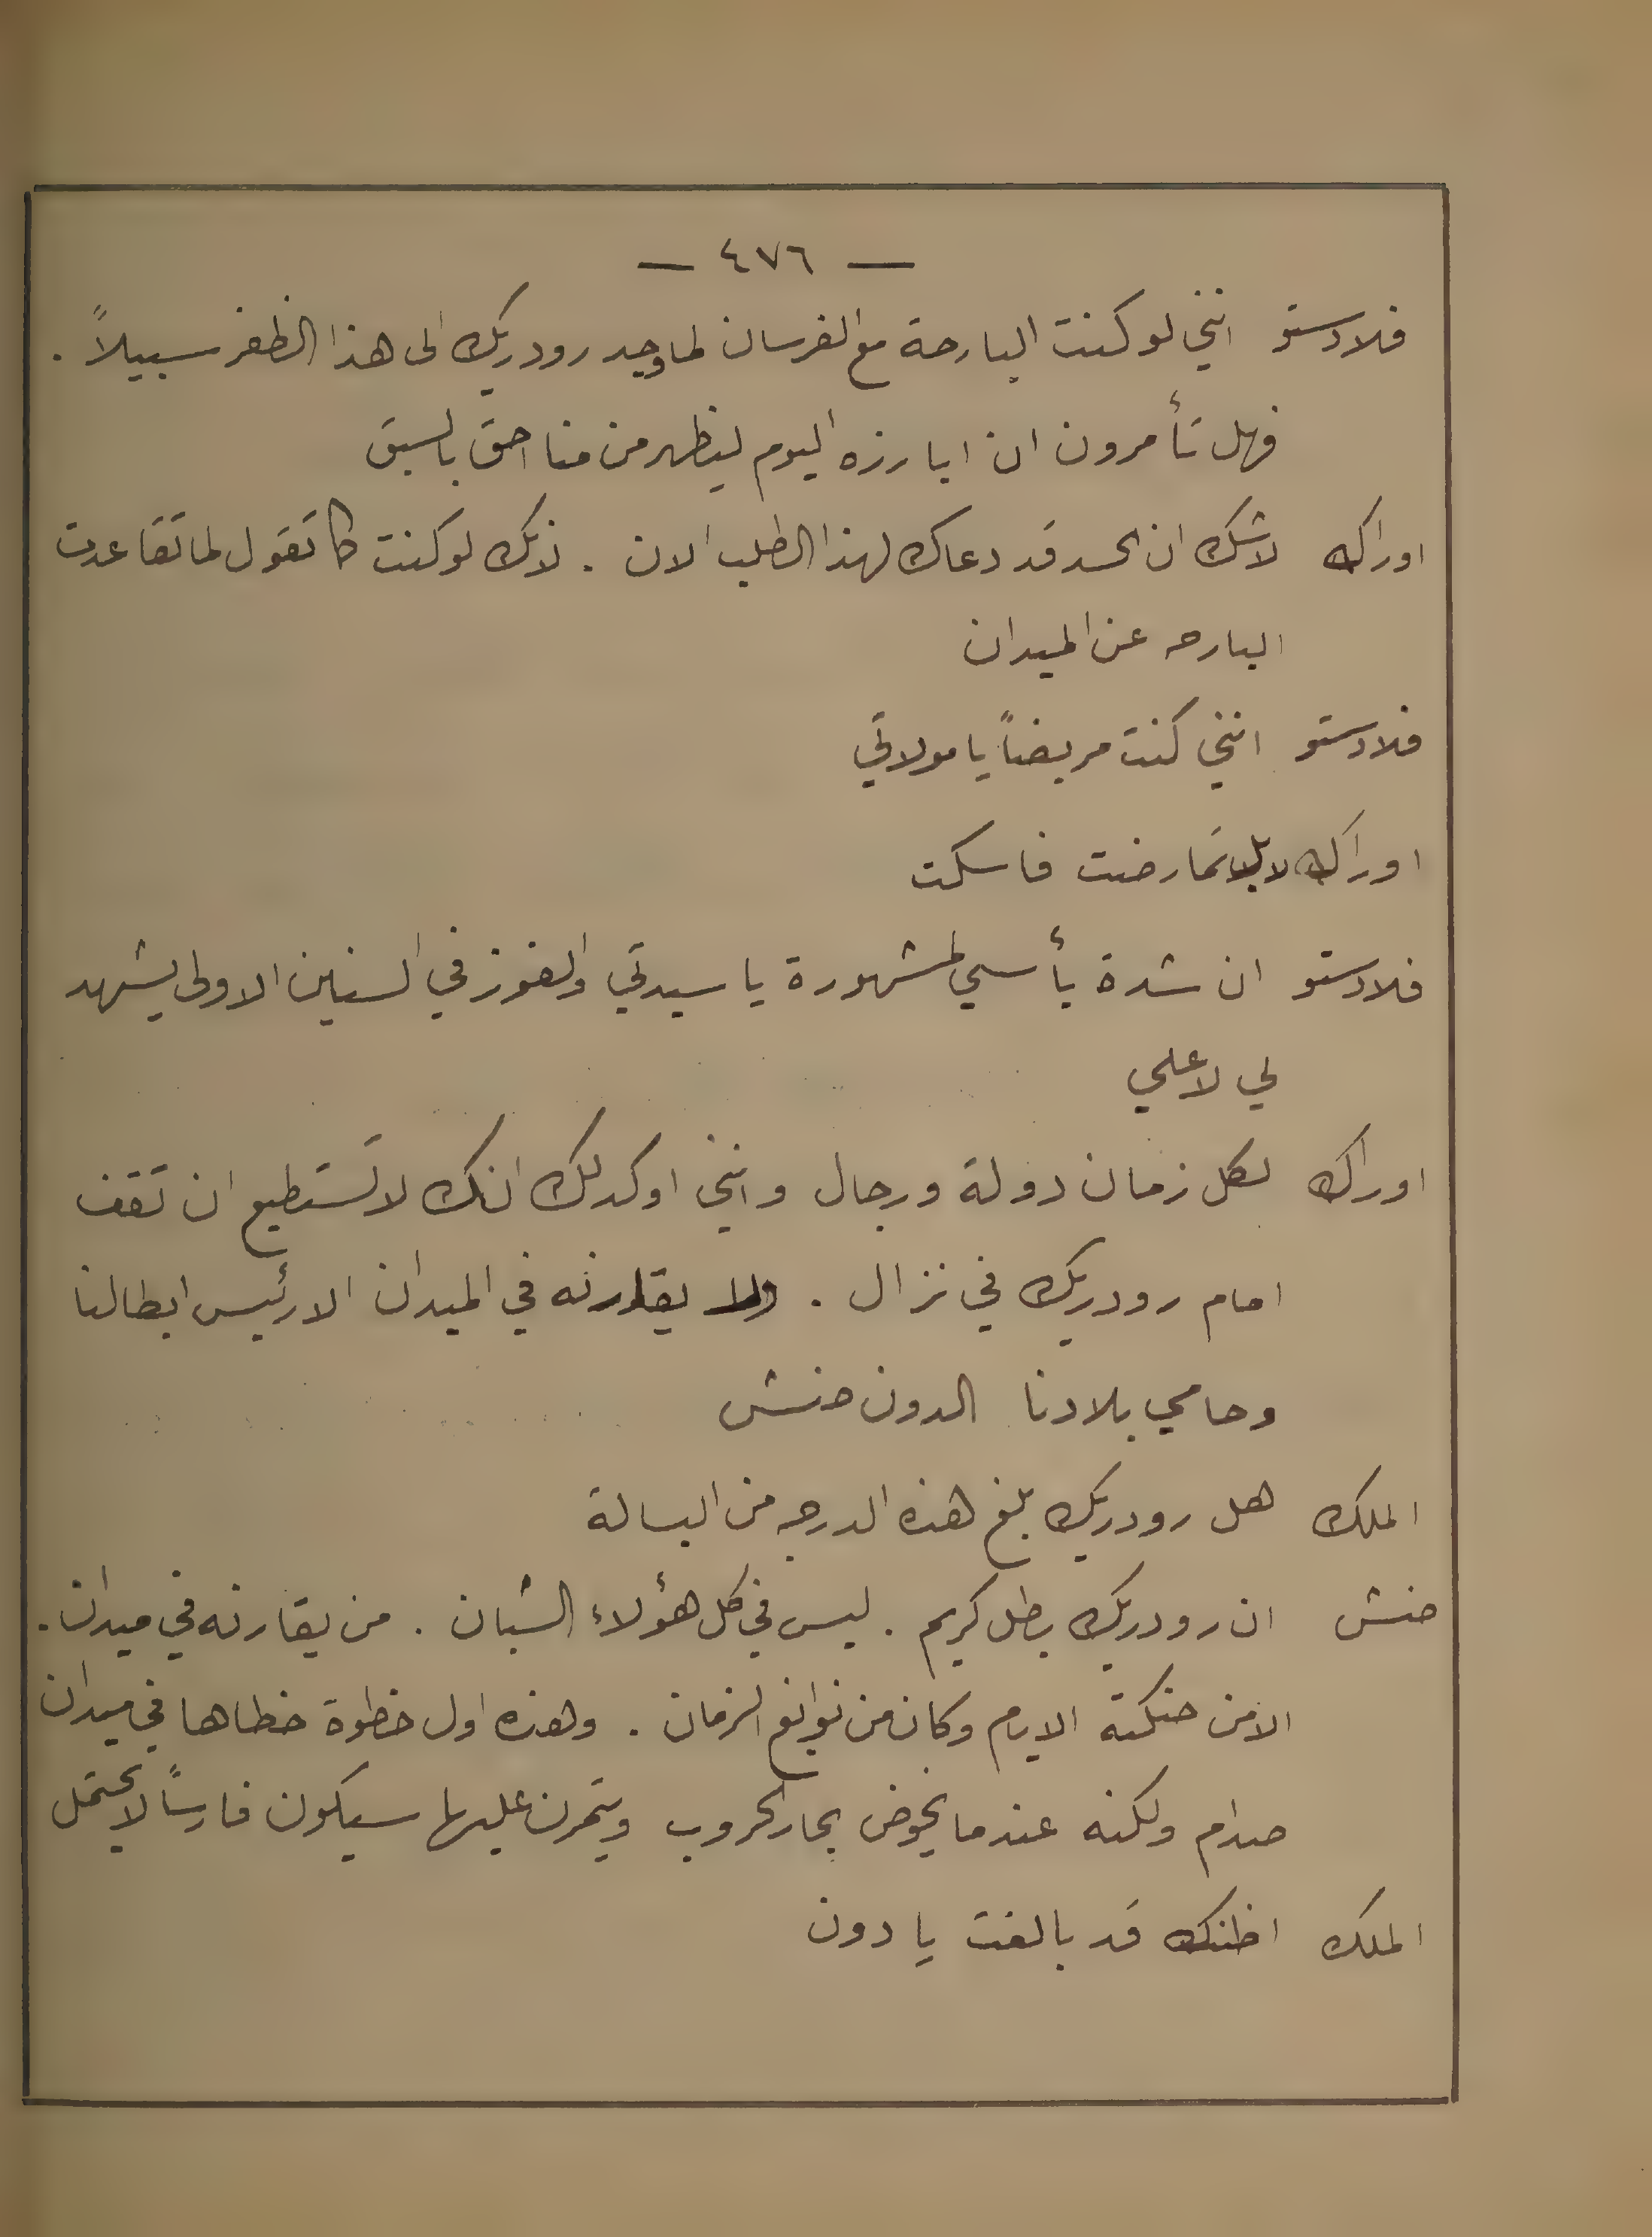 — ٤٧٦ —
فلادستو انني لو كنت البارحة مع الفرسان لما وجد رودريك الى هذا الظفر سبيلاً .
فهل تأمرون ان ابارزه اليوم ليظهر من منا احق بالسبق
اوراك لاشك ان الحسد قد دعاك لهذا الطلب الان . لانك لو كنت كما تقول لما تقاعدت
البارحه عن الميدان
فلادستو انني كنت مريضاً يا مولاتي
اوراك لا بل تمارضت فاسكت
فلادستو ان شدة بأسي لمشهورة يا سيدتي والفوز في السنين الاولى يشهد
لي لا علي
اوراك لكل زمان دولة ورجال وانني اوكد لك انك لا تستطيع ان تقف
امام رودريك في نزال . ولا يقارنه في الميدان الا رئيس ابطالنا
وحامي بلادنا الدون حنش
الملك هل رودريك بلغ هذه الدرجه من البسالة
حنش ان رودريك بطل كريم . ليس في كل هؤلاء الشبان . من يقارنه في ميدان .
الا من حنكته الايام وكان من نوابغ الزمان . وهذه اول خطوة خطاها في ميدان
صدام ولكنه عندما يخوض بحار الحروب ويتمرن عليها سيكون فارساً لا يحتمل
الملك اظنك قد بالغت يا دون